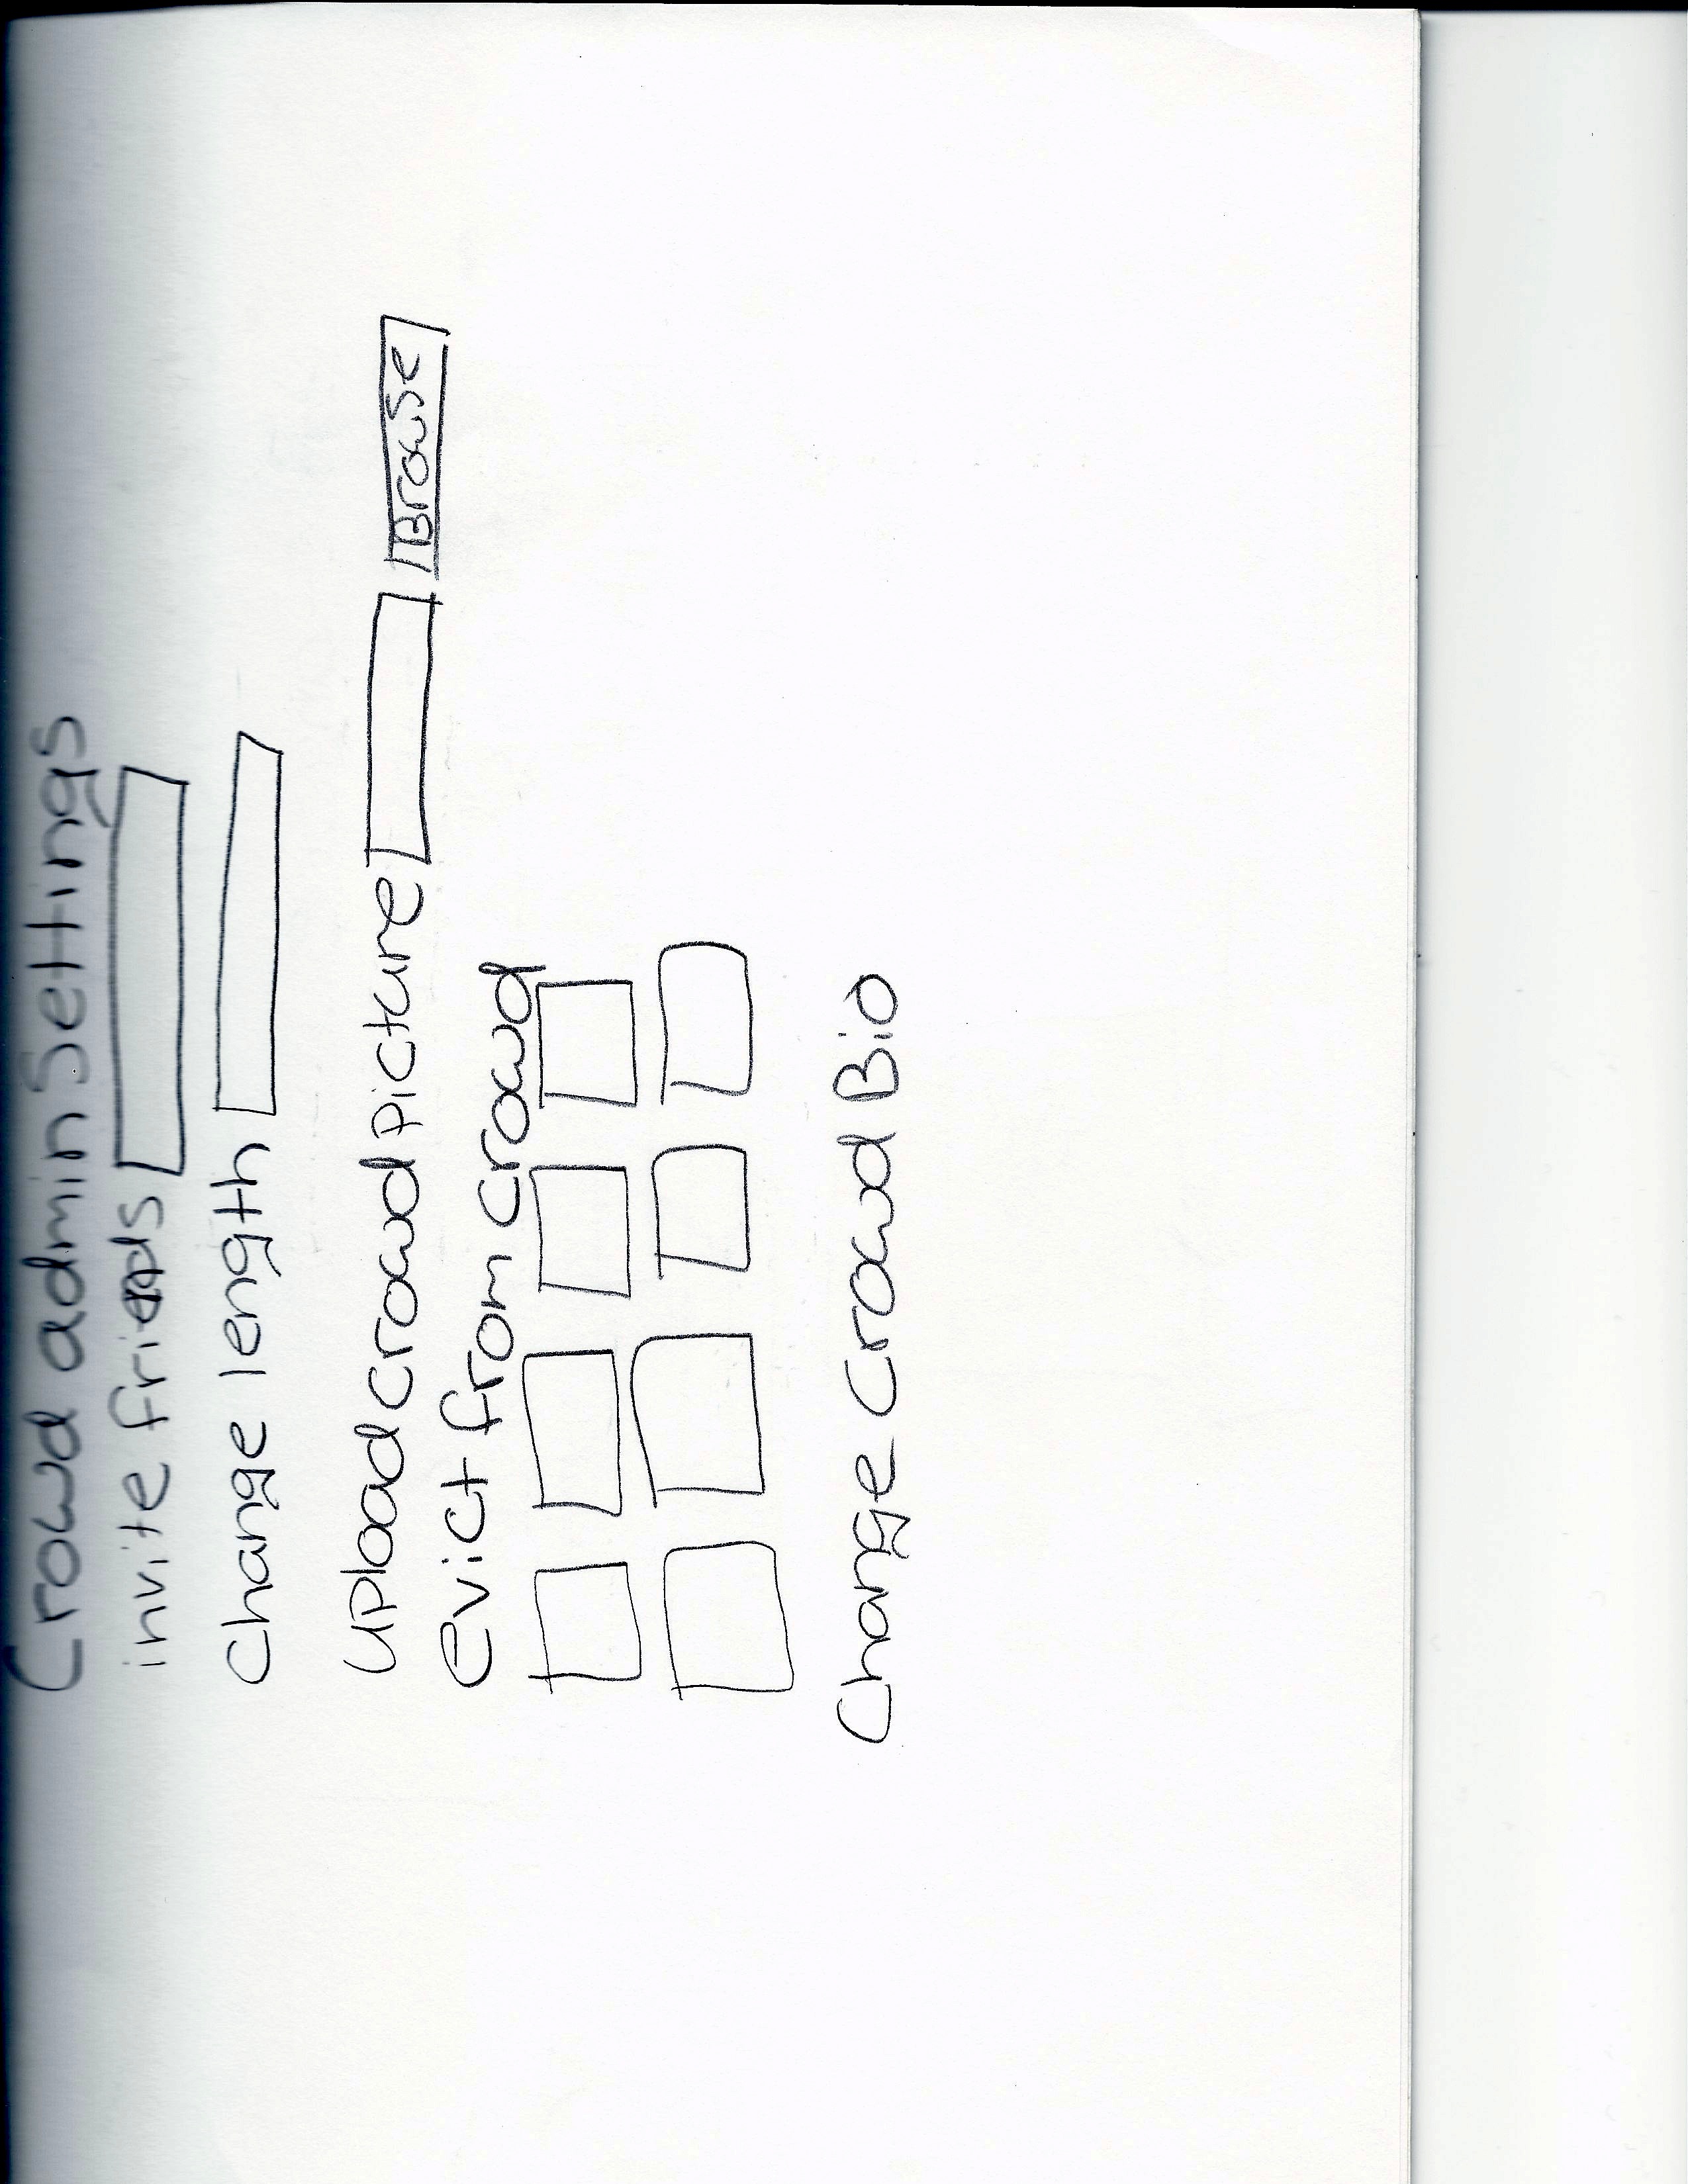 Crowd admin Settings
invite friends
Change length
upload crowd picture Browse
evict from crowd
Change Crowd Bio